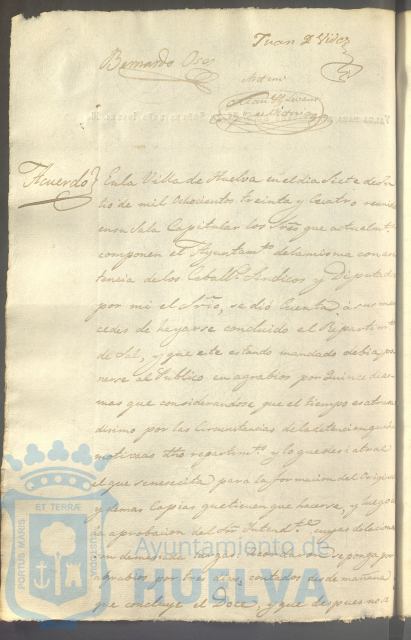 Juan D Vides
Bernardo Osos
Ante mi
Acuerdo} En la Villa de Huelva en el dia Siete de Ju
lio de mil ochocientos treinta y Cuatro reunidos
en su Sala Capitular los Sres que actualmte
componen el Ayuntamto de la misma con asis
tencia de los Caballs Sindicos y Diputados
por mi el Srio, se dió Cuenta á sus mer
cedes de hayarse concluido el Repartimto
de Sal, y que este estando mandado debia po
nerse al Publico en agrabios por Quince dias
mas que considerandose que el tiempo es atrasa
disimo por las Circunstancias de la detencion que
motivada dho repartimto y lo que des
el que se necesita para la formacion del Original
y demas Copias que tienen que hacerse, y luego
la aprobacion del Sor Intendte
Acordaron se ponga por
agrabios por tres dias, contados desde mañana
que concluye el Doce, y que despues no a
PORTUS MARIS
ET TERRÆ
CUSTODIA
Ayuntamiento de
HUELVA